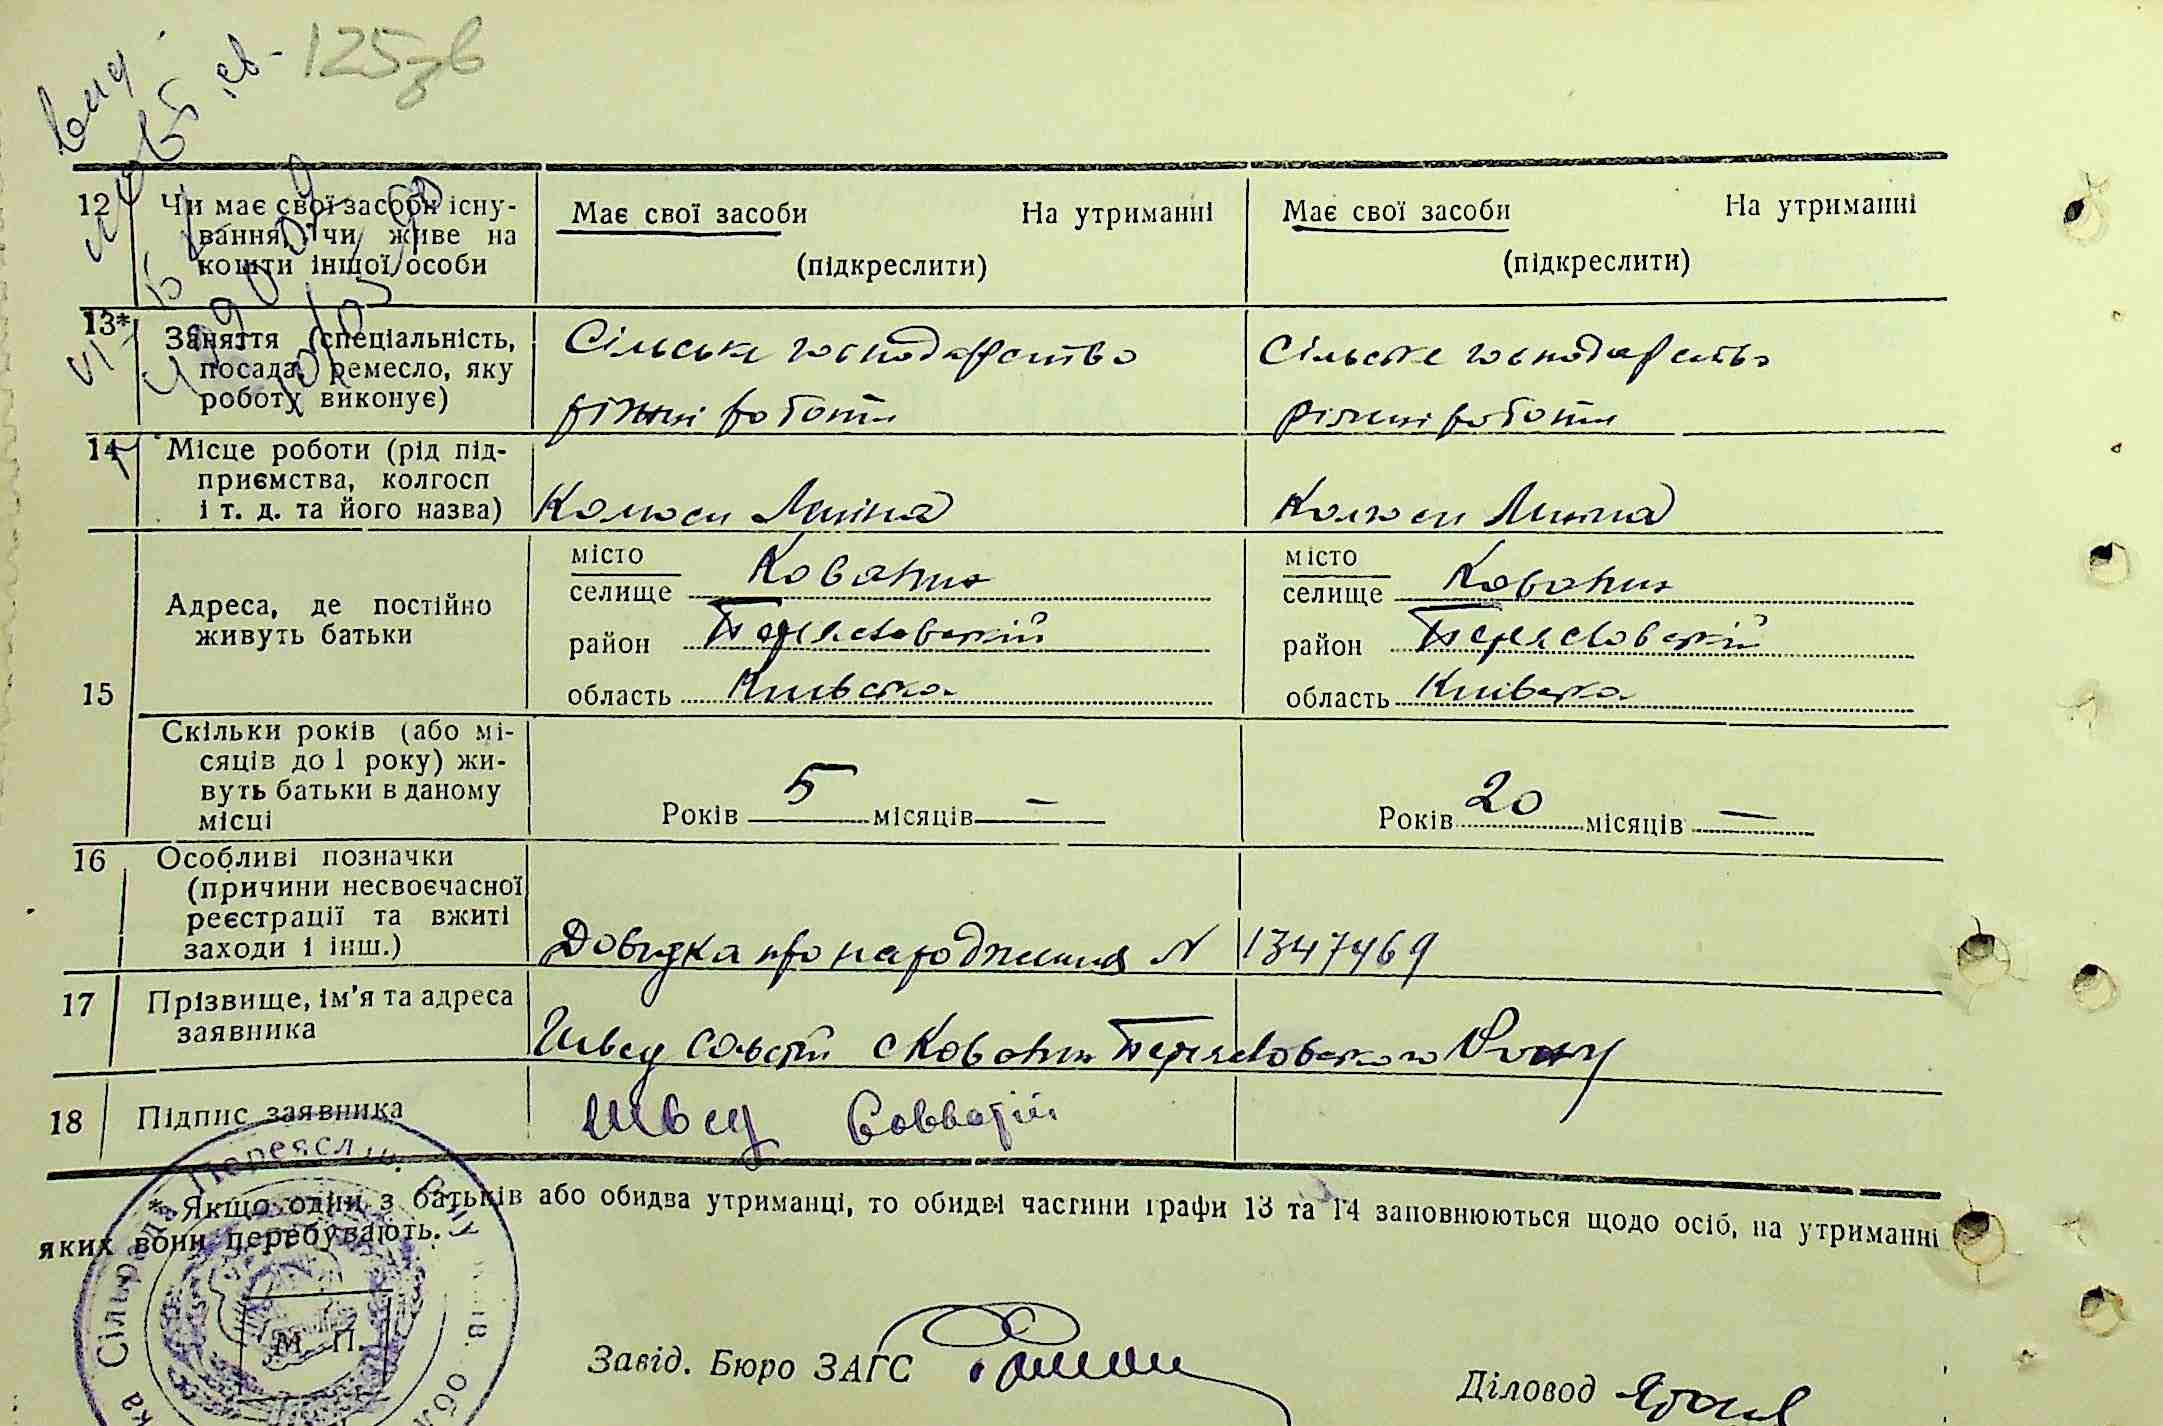 125зв
12 Чи має свої засоби існу-
вання, чи живе на
кошти іншої особи
Має свої засоби На утриманні
(підкреслити)
Має свої засоби На утриманні
(підкреслити)
13* Заняття (спеціальність,
посада, ремесло, яку
роботу виконує)
Сільське господарство
різні роботи
Сільське господарство
різні роботи
14 Місце роботи (рід під-
приємства, колгосп
і т. д. та його назва)
Колгосп Леніна
Колгосп Леніна
15 Адреса, де постійно
живуть батьки
місто
селище Ковалин
район Переяславський
область Київська
місто
селище Ковалин
район Переяславський
область Київська
Скільки років (або мі-
сяців до 1 року) жи-
вуть батьки в даному
місці
Років 5 місяців —
Років 20 місяців —
16 Особливі позначки
(причини несвоєчасної
реєстрації та вжиті
заходи і інш.)
Довідка про народження N 1347469
17 Прізвище, ім'я та адреса
заявника
Швед Саватій с Ковалин Переяславського р-ну
18 Підпис заявника
Швед Савватій
* Якщо один з батьків або обидва утриманці, то обидві частини графи 13 та 14 заповнюються щодо осіб, на утриманні
яких вони перебувають.
М. П.
Завід. Бюро ЗАГС
Діловод